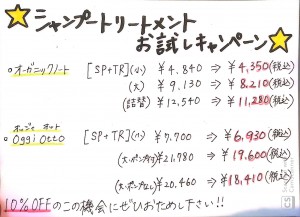 シャンプートリートメント
お試しキャンペーン
・オーガニックノート [SP+TR](小) ¥4,840 ⇒ ¥4,350(税込)
(大) ¥9,130 ⇒ ¥8,210(税込)
(詰替) ¥12,540 ⇒ ¥11,280(税込)
オッジィ オット
・Oggi Otto [SP+TR](小) ¥7,700 ⇒ ¥6,930(税込)
(大・ポンプ付) ¥21,780 ⇒ ¥19,600(税込)
(大・ポンプなし) ¥20,460 ⇒ ¥18,410(税込)
10%OFFのこの機会にぜひおためし下さい!!